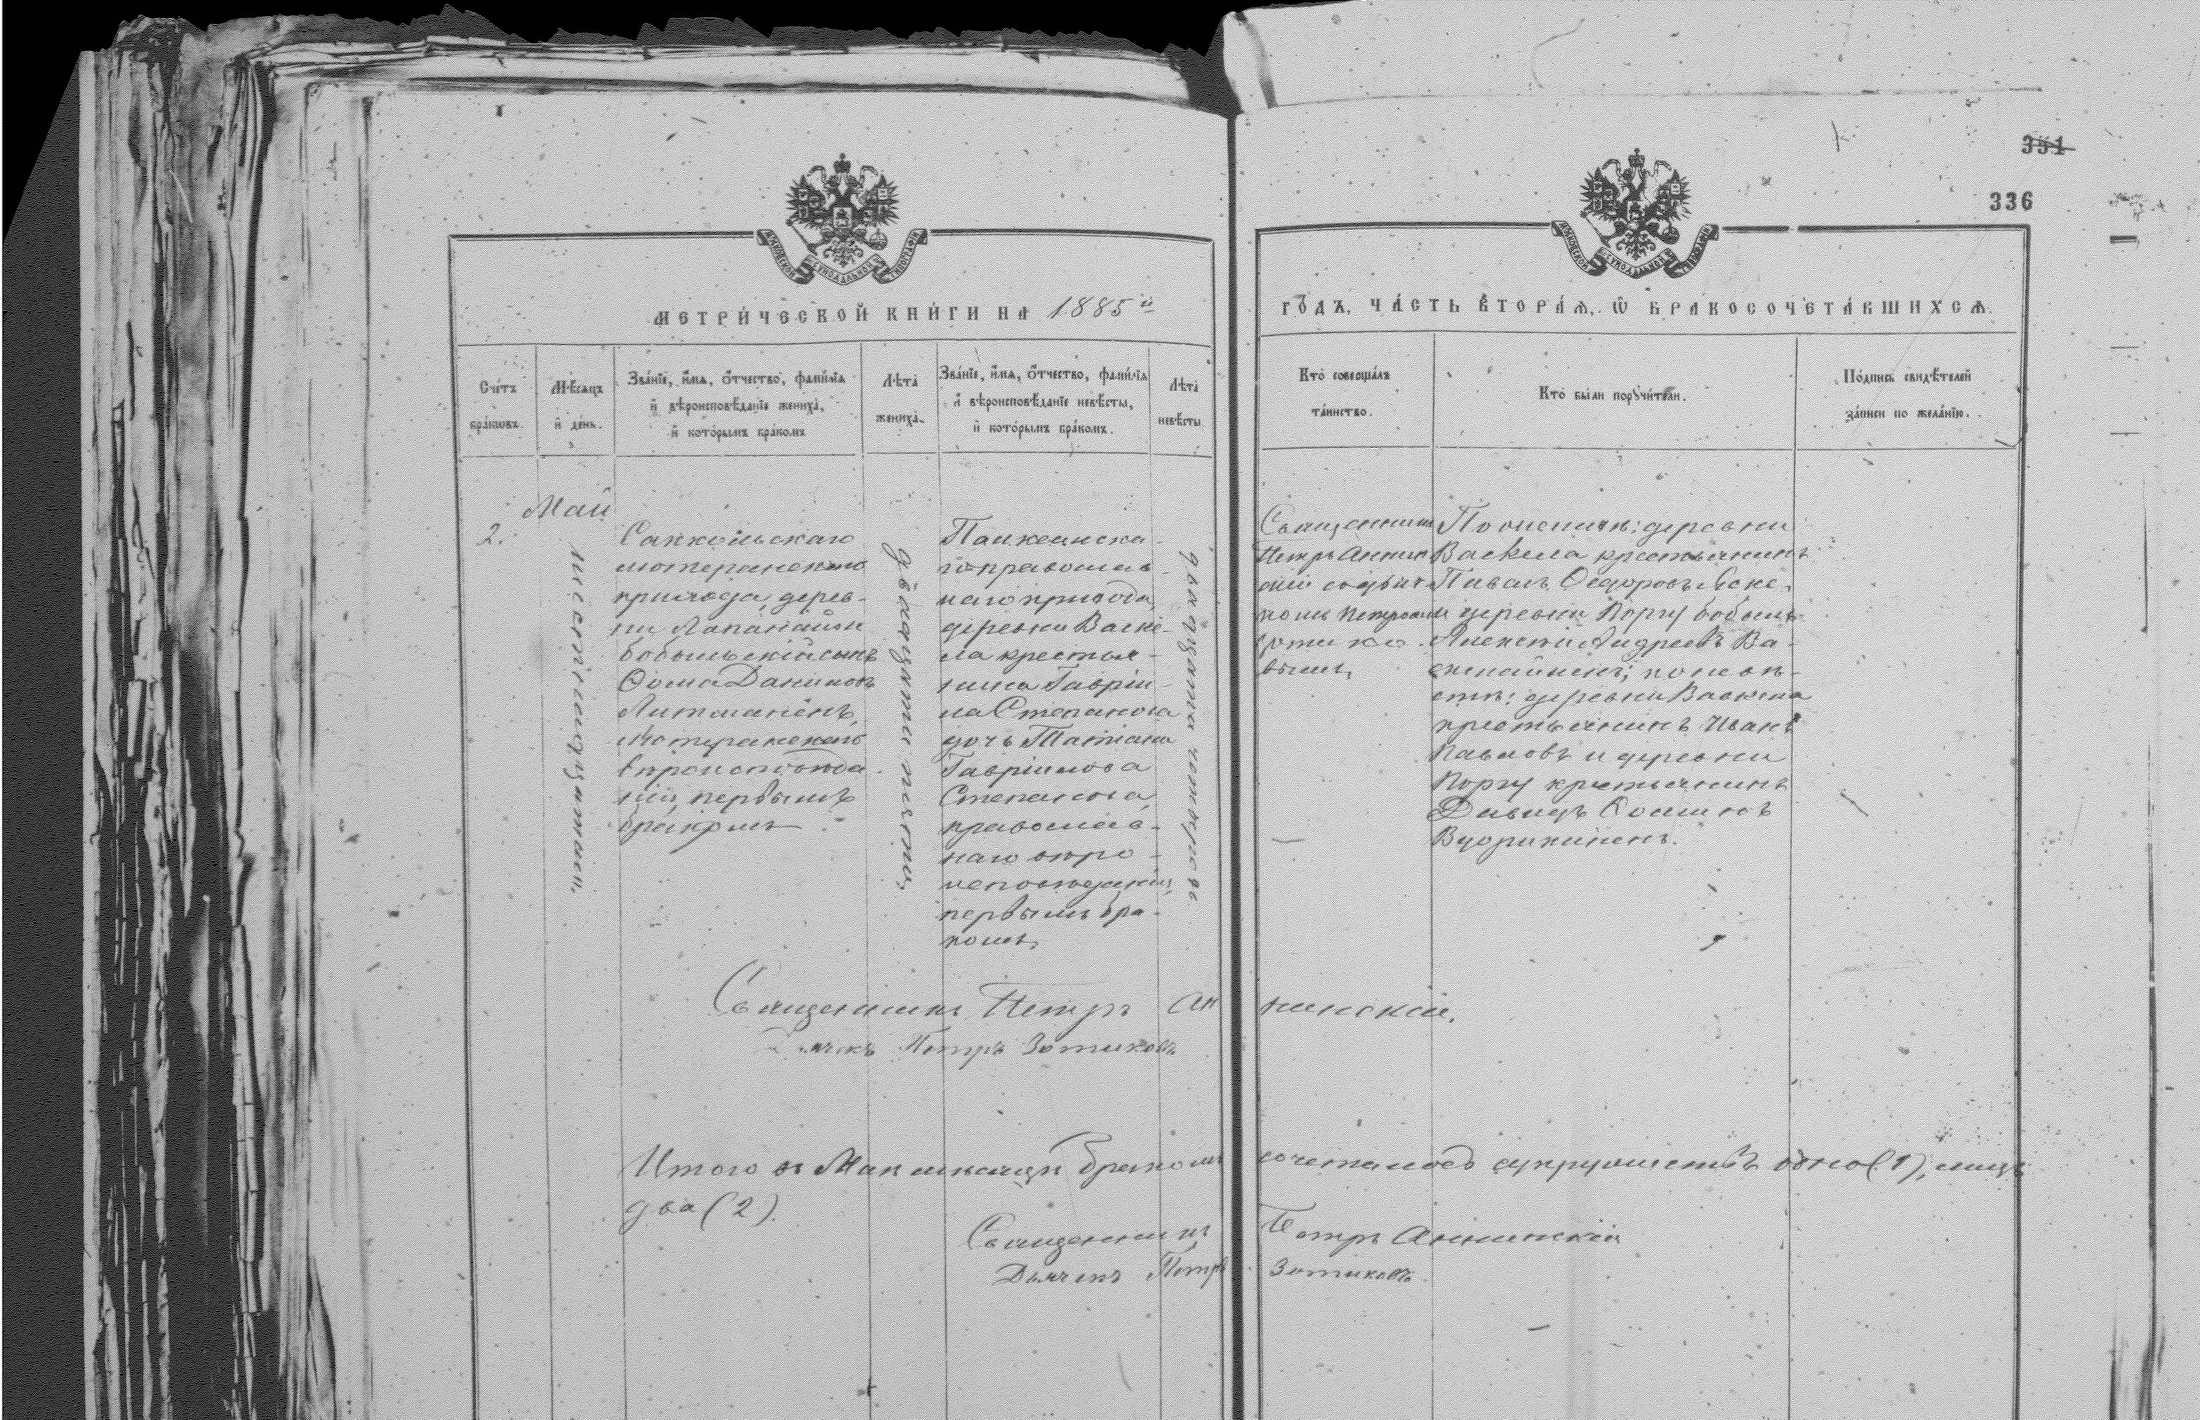 351
336
МОСКОВСКОЙ СѴНОДАЛЬНОЙ ТИПОГРАФІИ
МОСКОВСКОЙ СѴНОДАЛЬНОЙ ТИПОГРАФІИ
МЕТРИ́ЧЕСКОЙ КНИ́ГИ НА 1885й
ГО́ДЪ, ЧА́СТЬ ВТОРА́Я, Ѡ БРАКОСОЧЕТА́ВШИХСЯ.
Сче́тъ
бра́ковъ.
Мѣ́сяцъ
и҆ де́нь.
Зва́нїе, и҆́мя, ѻ҆́тчество, фами́лїя
и҆ вѣроисповѣ́данїе жениха̀,
и҆ кото́рымъ бра́комъ
Лѣ́та
жениха̀.
Зва́нїе, и҆́мя, ѻ҆́тчество, фами́лїя
и҆ вѣроисповѣ́данїе невѣ́сты,
и҆ кото́рымъ бра́комъ.
Лѣ́та
невѣ́сты
Кто̀ соверша́лъ
та́инство.
Кто̀ бы́ли порꙋчи́тели.
По́дпись свидѣ́телей
за́писи по жела́нїю.
2.
Май
шестнадцатаго.
Саккольскаго
лютеранскаго
прихода, дерев-
ни
бобыльскій сынъ
Ѳома Даниловъ
лютеранскаго
вѣроисповѣда-
нія, первымъ
бракомъ
двадцати пяти,
православ-
наго прихода,
деревни Васке-
ла крестья-
нина Гаврі-
ла Степанова
дочь Татіана
Гавріилова
Степанова,
православ-
наго вѣро-
исповѣданія,
первымъ бра-
комъ.
двадцати четырехъ
Священникъ
Петръ Аннин-
скій съ дьяч-
комъ Петромъ
Зотико-
вымъ.
По женихѣ: деревни
Васкела крестьянинъ
Павелъ Ѳедоровъ
деревни Порку бобыль
Алексѣй Андреевъ Ва-
скелайненъ; по невѣ-
стѣ: деревни Васкела
крестьянинъ Иванъ
Павловъ и деревни
Порку крестьянинъ
Давидъ Ѳоминъ
Вуорикиненъ.
Священникъ Петръ Аннинскій.
Дьячекъ Петръ Зотиковъ
Итого въ Маѣ мѣсяцѣ бракомъ сочеталось супружествъ одно (1), лицъ
два (2).
Священникъ Петръ Аннинскій
Дьячекъ Петръ Зотиковъ.